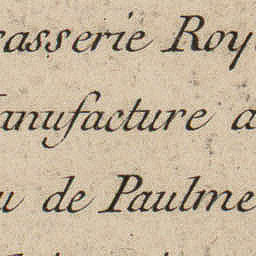 rasserie Roy
anufacture a
u de Paulme